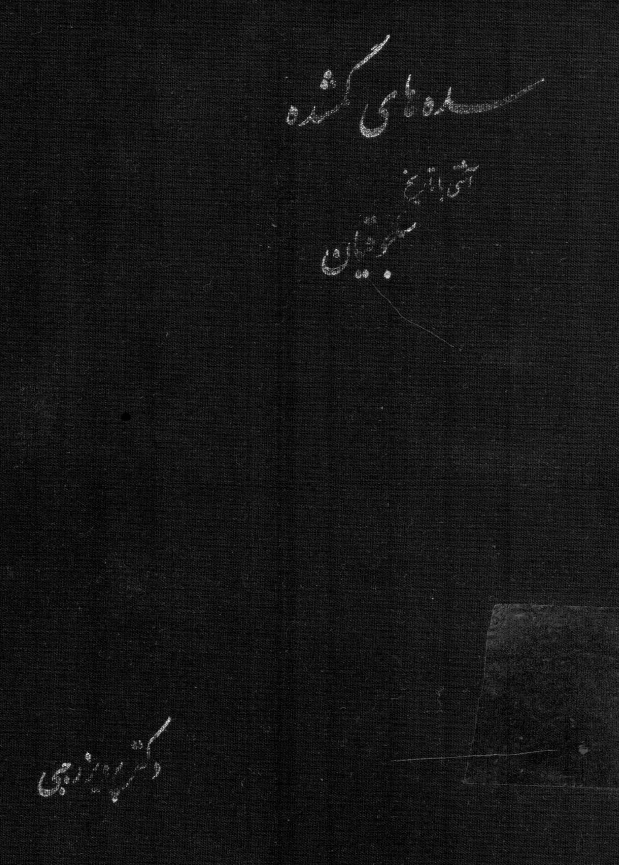 سده های گمشده
آشتی با تاریخ
سلجوقیان
دکتر پرویز رجبی